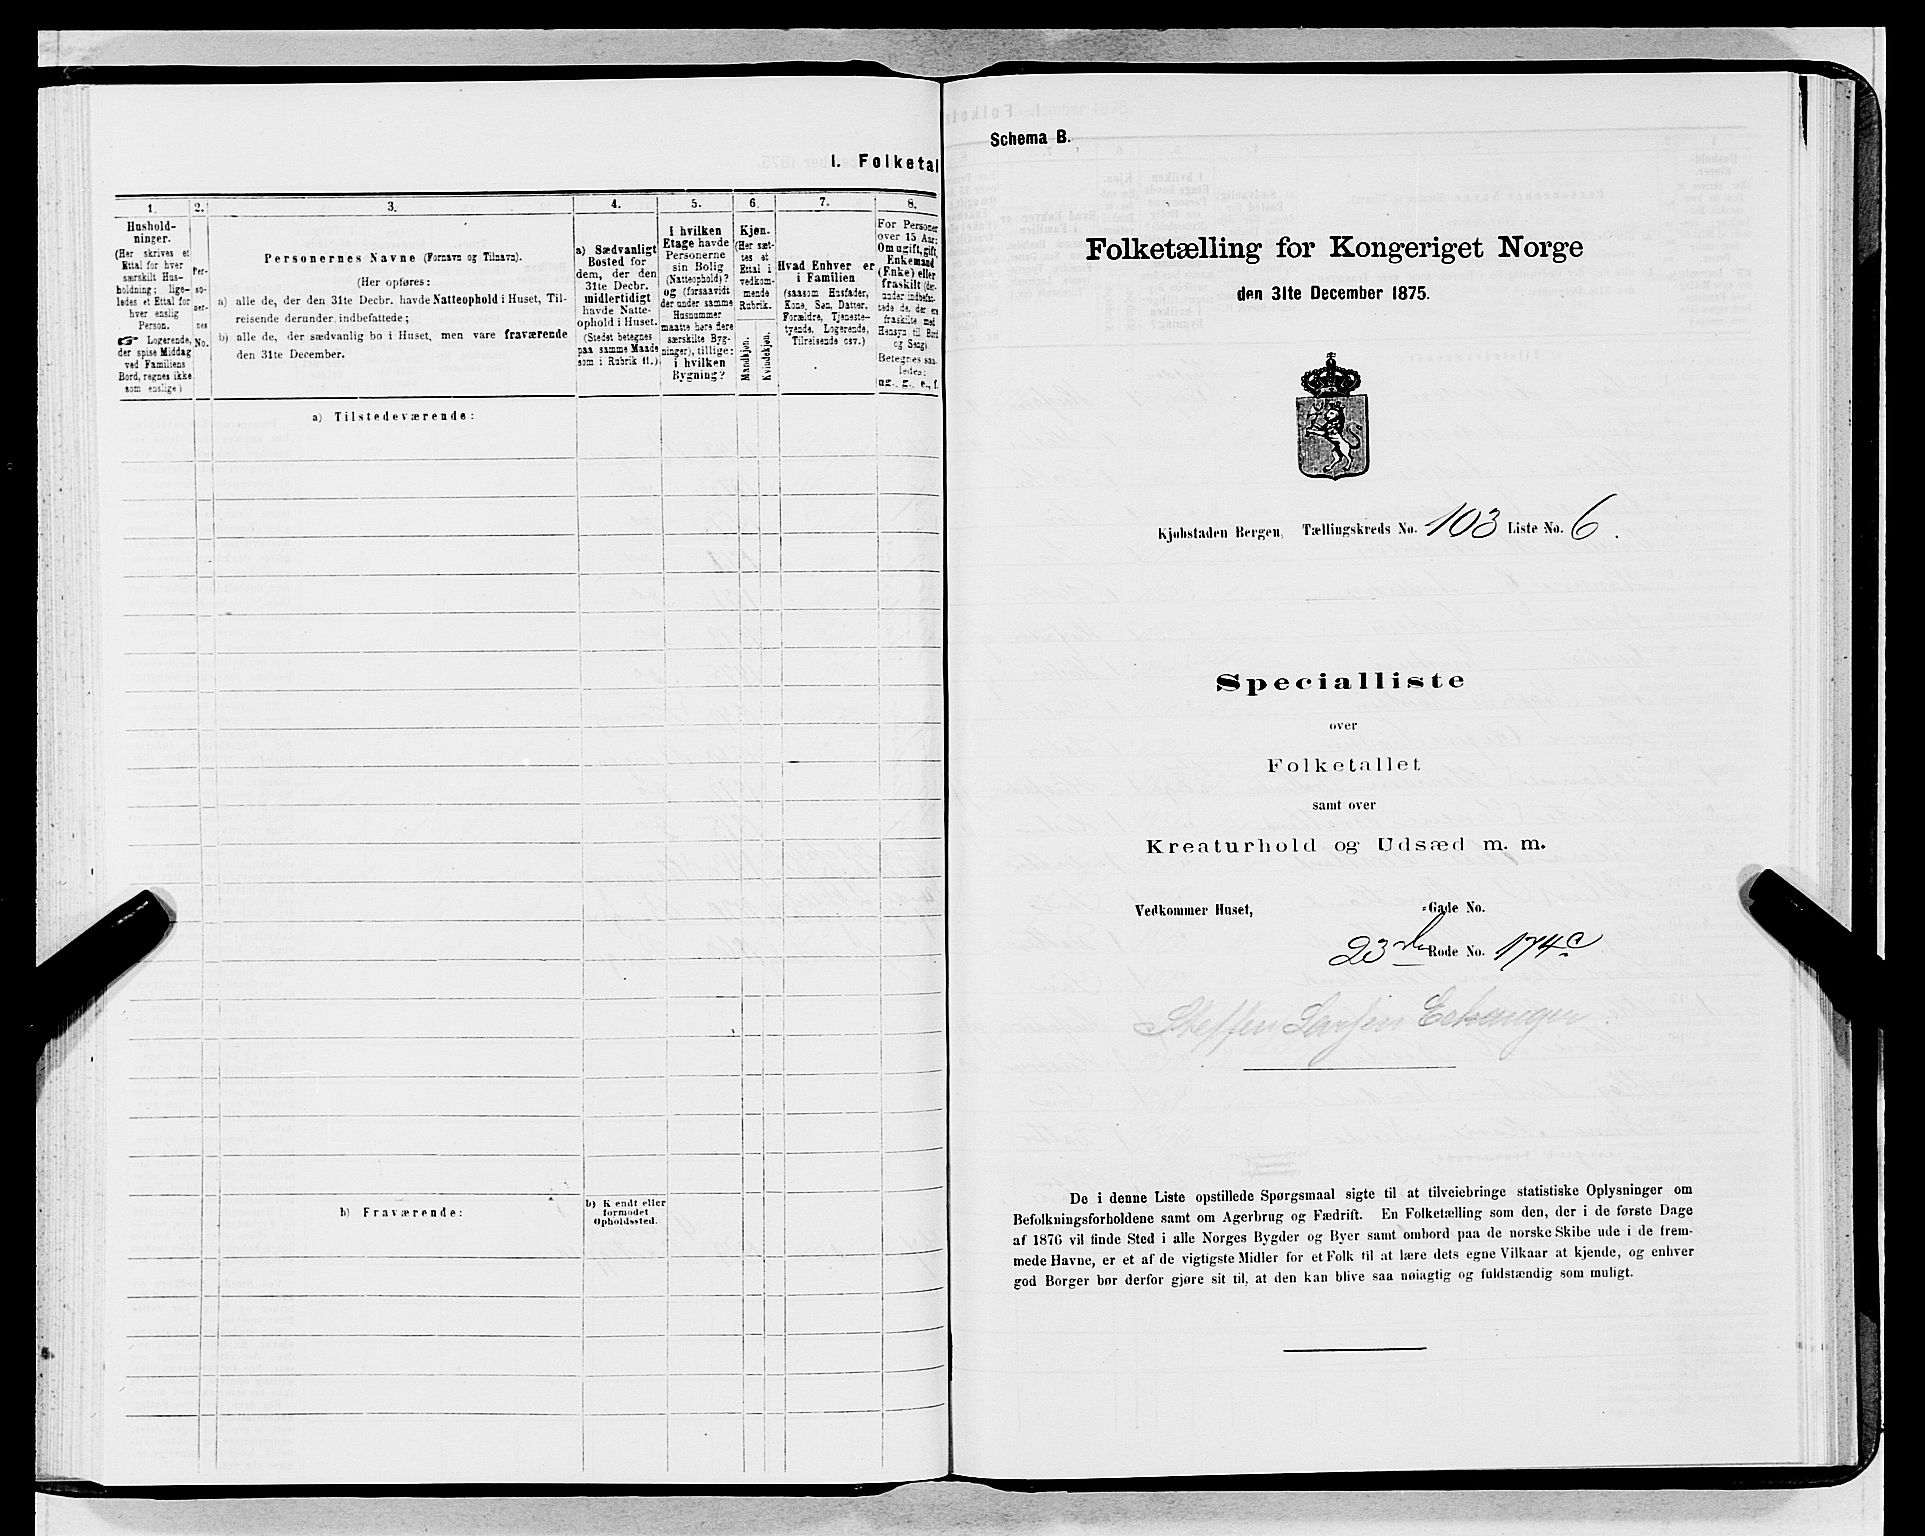 I. Folketal
1. 2. 3. 4. 5. 6. 7. 8.
Hushold-
ninger.
(Her skrives et
Ettal for hver
særskilt Hus-
holdning; lige-
ledes et Ettal for
hver enslig
Person.
☞ Logerende,
der spise Middag
ved Familiens
Bord, regnes ikke
som enslige)
Per-
so-
ner-
nes
No.
Personernes Navne (Fornavn og Tilnavn).
(Her opføres:
a) alle de, der den 31te Decbr. havde Natteophold i Huset, Til-
reisende derunder indbefattede;
b) alle de, der sædvanlig bo i Huset, men vare fraværende
den 31te December.
a) Sædvanligt
Bosted for
dem, der den
31te Decbr.
midlertidigt
havde Natte-
ophold i Huset.
(Stedet betegnes
paa samme Maade
som i Rubrik 11.)
I hvilken
Etage havde
Personerne
sin Bolig
(Natteophold)?
og (forsaavidt
der under samme
Husnummer
maatte høre flere
særskilte Byg-
ninger), tillige:
i hvilken
Bygning?
Kjøn.
(Her sæt-
tes et
Ettal i
vedkom-
mende
Rubrik.
Mandkjøn.
Kvindekjøn.
Hvad Enhver er
i Familien
(saasom Husfader,
Kone, Søn, Datter,
Forældre, Tjeneste-
tyende, Logerende,
Tilreisende osv.)
For Personer
over 15 Aar:
Om ugift, gift,
Enkemand
(Enke) eller
fraskilt (der-
under indbefat-
tede de, der ere
fraskilte med
Hensyn til Bord
og Seng)
Betegnes saa-
ledes:
ug., g., e., f.
a) Tilstedeværende:
b) Fraværende:
b) Kjendt eller
formodet
Opholdssted.
Schema B.
Folketælling for Kongeriget Norge
den 31te December 1875.
Kjøbstaden Bergen, Tællingskreds No. 103 Liste No. 6.
Specialliste
over
Folketallet
samt over
Kreaturhold og Udsæd m. m.
Vedkommer Huset, -Gade No.
23de Rode No. 174c
Steffen Larsen Echanger
De i denne Liste opstillede Spørgsmaal sigte til at tilveiebringe statistiske Oplysninger om
Befolkningsforholdene samt om Agerbrug og Fædrift. En Folketælling som den, der i de første Dage
af 1876 vil finde Sted i alle Norges Bygder og Byer samt ombord paa de norske Skibe ude i de frem-
mede Havne, er et af de vigtigste Midler for et Folk til at lære dets egne Vilkaar at kjende, og enhver
god Borger bør derfor gjøre sit til, at den kan blive saa nøiagtig og fuldstændig som muligt.